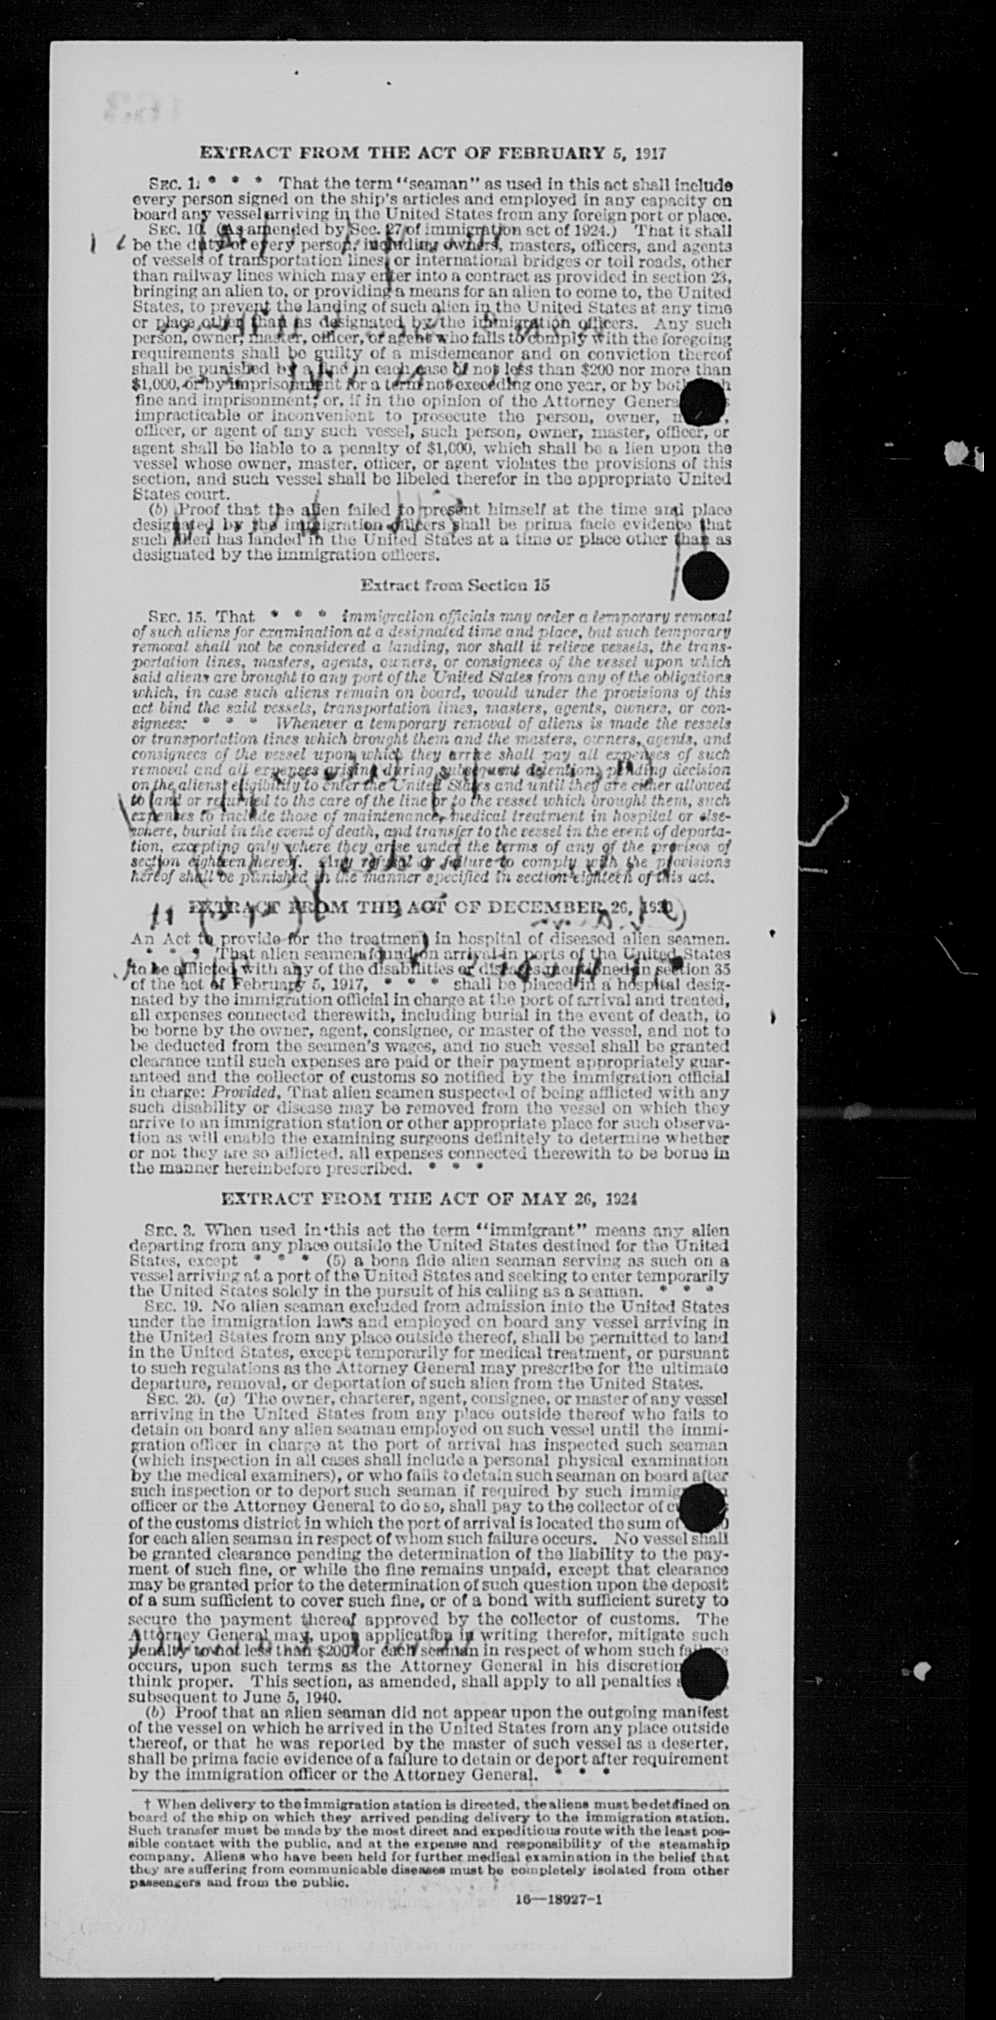 EXTRACT FROM THE ACT OF FEBRUARY 5, 1917
SEC. 1. * * * That the term "seaman" as used in this act shall include
every person signed on the ship's articles and employed in any capacity on
board any vessel arriving in the United States from any foreign port or place.
SEC. 10. (As amended by Sec. 27 of immigration act of 1924.) That it shall
be the duty of every person, including owners, masters, officers, and agents
of vessels of transportation lines, or international bridges or toll roads, other
than railway lines which may enter into a contract as provided in section 23,
bringing an alien to, or providing a means for an alien to come to, the United
States, to prevent the landing of such alien in the United States at any time
or place other than as designated by the immigration officers. Any such
person, owner, master, officer, or agent who fails to comply with the foregoing
requirements shall be guilty of a misdemeanor and on conviction thereof
shall be punished by a fine in each case of not less than $200 nor more than
$1,000, or by imprisonment for a term not exceeding one year, or by both
fine and imprisonment; or, if in the opinion of the Attorney General
impracticable or inconvenient to prosecute the person, owner,
officer, or agent of any such vessel, such person, owner, master, officer, or
agent shall be liable to a penalty of $1,000, which shall be a lien upon the
vessel whose owner, master, officer, or agent violates the provisions of this
section, and such vessel shall be libeled therefor in the appropriate United
States court.
(b) Proof that the alien failed to present himself at the time and place
designated by the immigration officers shall be prima facie evidence that
such alien has landed in the United States at a time or place other than as
designated by the immigration officers.
Extract from Section 15
SEC. 15. That * * * immigration officials may order a temporary removal
of such aliens for examination at a designated time and place, but such temporary
removal shall not be considered a landing, nor shall it relieve vessels, the trans-
portation lines, masters, agents, owners, or consignees of the vessel upon which
said aliens are brought to any port of the United States from any of the obligations
which, in case such aliens remain on board, would under the provisions of this
act bind the said vessels, transportation lines, masters, agents, owners, or con-
signees: * * * Whenever a temporary removal of aliens is made the vessels
or transportation lines which brought them and the masters, owners, agents, and
consignees of the vessel upon which they arrive shall pay all expenses of such
removal and all expenses arising during subsequent detention, pending decision
on the aliens' eligibility to enter the United States and until they are either allowed
to land or returned to the care of the line or to the vessel which brought them, such
expenses to include those of maintenance, medical treatment in hospital or else-
where, burial in the event of death, and transfer to the vessel in the event of deporta-
tion, excepting only where they arise under the terms of any of the provisos of
section eighteen hereof. Any refusal or failure to comply with the provisions
hereof shall be punished in the manner specified in section eighteen of this act.
EXTRACT FROM THE ACT OF DECEMBER 26, 1920
An Act to provide for the treatment in hospital of diseased alien seamen.
* * * That alien seamen found on arrival in ports of the United States
to be afflicted with any of the disabilities or diseases mentioned in section 35
of the act of February 5, 1917, * * * shall be placed in a hospital desig-
nated by the immigration official in charge at the port of arrival and treated,
all expenses connected therewith, including burial in the event of death, to
be borne by the owner, agent, consignee, or master of the vessel, and not to
be deducted from the seamen's wages, and no such vessel shall be granted
clearance until such expenses are paid or their payment appropriately guar-
anteed and the collector of customs so notified by the immigration official
in charge: Provided, That alien seamen suspected of being afflicted with any
such disability or disease may be removed from the vessel on which they
arrive to an immigration station or other appropriate place for such observa-
tion as will enable the examining surgeons definitely to determine whether
or not they are so afflicted, all expenses connected therewith to be borne in
the manner hereinbefore prescribed. * * *
EXTRACT FROM THE ACT OF MAY 26, 1924
SEC. 3. When used in this act the term "immigrant" means any alien
departing from any place outside the United States destined for the United
States, except * * * (5) a bona fide alien seaman serving as such on a
vessel arriving at a port of the United States and seeking to enter temporarily
the United States solely in the pursuit of his calling as a seaman. * * *
SEC. 19. No alien seaman excluded from admission into the United States
under the immigration laws and employed on board any vessel arriving in
the United States from any place outside thereof, shall be permitted to land
in the United States, except temporarily for medical treatment, or pursuant
to such regulations as the Attorney General may prescribe for the ultimate
departure, removal, or deportation of such alien from the United States.
SEC. 20. (a) The owner, charterer, agent, consignee, or master of any vessel
arriving in the United States from any place outside thereof who fails to
detain on board any alien seaman employed on such vessel until the immi-
gration officer in charge at the port of arrival has inspected such seaman
(which inspection in all cases shall include a personal physical examination
by the medical examiners), or who fails to detain such seaman on board after
such inspection or to deport such seaman if required by such
officer or the Attorney General to do so, shall pay to the collector of
of the customs district in which the port of arrival is located the sum of
for each alien seaman in respect of whom such failure occurs. No vessel shall
be granted clearance pending the determination of the liability to the pay-
ment of such fine, or while the fine remains unpaid, except that clearance
may be granted prior to the determination of such question upon the deposit
of a sum sufficient to cover such fine, or of a bond with sufficient surety to
secure the payment thereof approved by the collector of customs. The
Attorney General may, upon application in writing therefor, mitigate such
penalty to not less than $200 for each seaman in respect of whom such failure
occurs, upon such terms as the Attorney General in his discretion
think proper. This section, as amended, shall apply to all penalties
subsequent to June 5, 1940.
(b) Proof that an alien seaman did not appear upon the outgoing manifest
of the vessel on which he arrived in the United States from any place outside
thereof, or that he was reported by the master of such vessel as a deserter,
shall be prima facie evidence of a failure to detain or deport after requirement
by the immigration officer or the Attorney General. * * *
† When delivery to the immigration station is directed, the aliens must be detained on
board of the ship on which they arrived pending delivery to the immigration station.
Such transfer must be made by the most direct and expeditious route with the least pos-
sible contact with the public, and at the expense and responsibility of the steamship
company. Aliens who have been held for further medical examination in the belief that
they are suffering from communicable diseases must be completely isolated from other
passengers and from the public.
16—18927-1